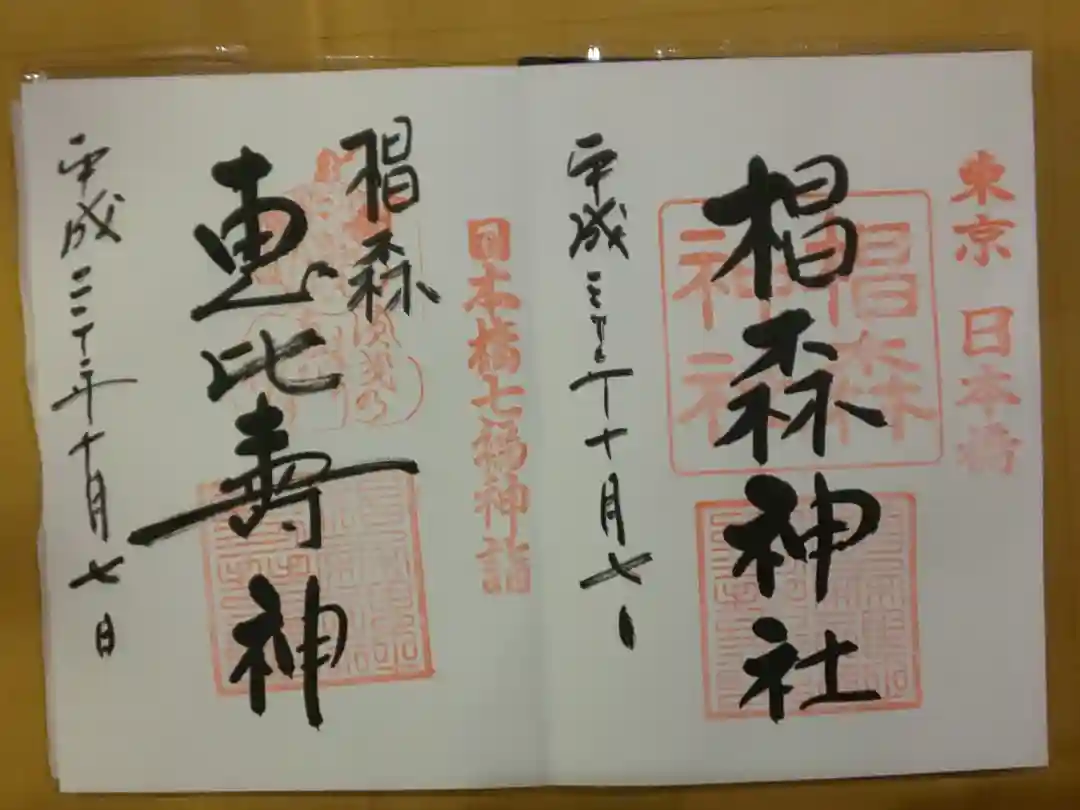 東京 日本橋
椙森神社
椙森
神社
平成二十二年十月七日
日本橋七福神詣
椙森
恵比寿神
平成二十二年十月七日